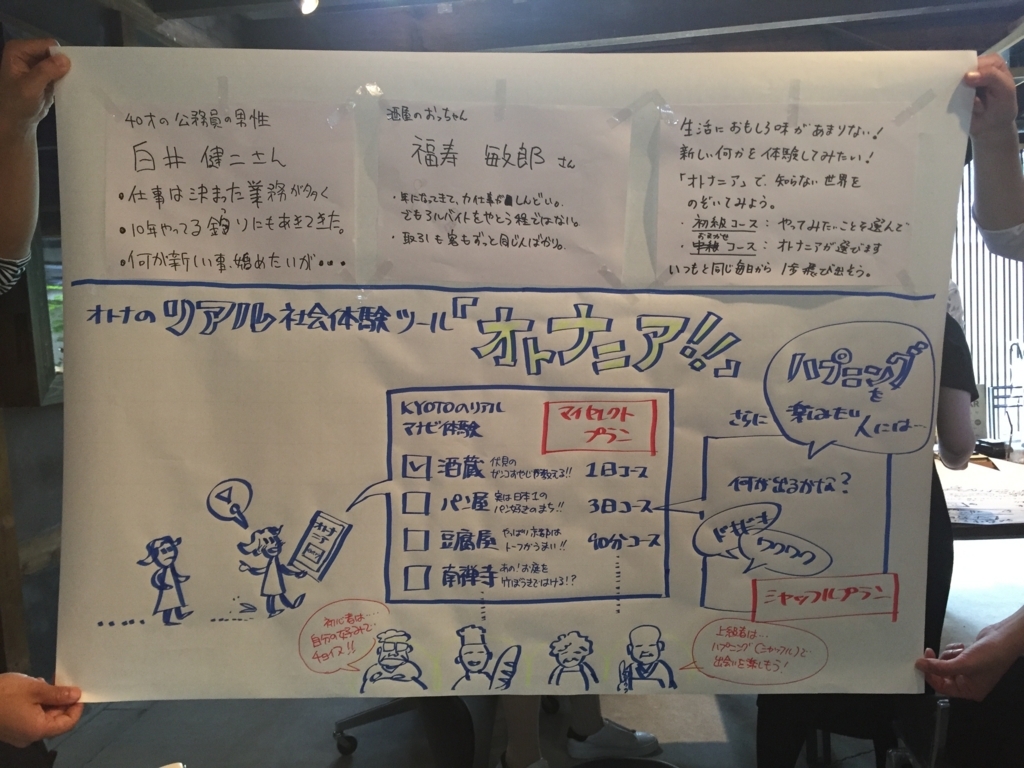 40才の公務員の男性
白井 健二さん
・仕事は決また業務が多く
・10年やってる釣りにもあきてきた。
・何か新しい事、始めたいが・・・
酒屋のおっちゃん
福寿 敏郎 さん
・年になってきて、力仕事がしんどい。
でもアルバイトをやとう程ではない。
・取引も客もずっと同じ人ばかり。
生活におもしろ味があまりない!
新しい何かを体験してみたい!
「オトナニア」で、知らない世界を
のぞいてみよう。
・初級コース:やってみたいことを選んで
おまかせ
・中級コース:オトナニアが選びます
いつもと同じ毎日から 1歩飛び出そう。
オトナの リアル 社会体験 ツール『オトナニア!!』
KYOTOのリアル
マナビ体験
マイセレクト
プラン
酒蔵 伏見の
ガンコおやじが教える!! 1日コース
パン屋 実は日本1の
パン好きのまち!! 3日コース
豆腐屋 やっぱり京都は
トーフがうまい!! 90分コース
南禅寺 あの!お庭を
竹ぼうきではける!?
さらに
ハプニングを
楽しみたい
人には…
何が出るかな?
ドキドキ
ワクワク
シャッフルプラン
オトナニア
初心者は…
自分の好みで
チョイス!!
上級者は…
ハプニング(シャッフル)と
出会いを楽しもう!